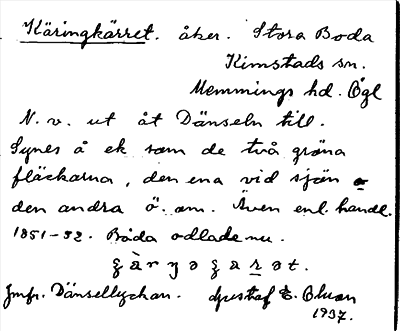 Käringkärret. åker. Stora Boda
Kimstads sn.
Memmings hd. Ögl
N. v. ut åt Dänseln till.
Synes å ek som de två gröna
fläckarna, den ena vid sjön o
den andra ö. om. Även enl. handl.
1851-52. Båda odlade nu.
Jmfr. Dänsellyckan. Gustaf E. Olson
1937.